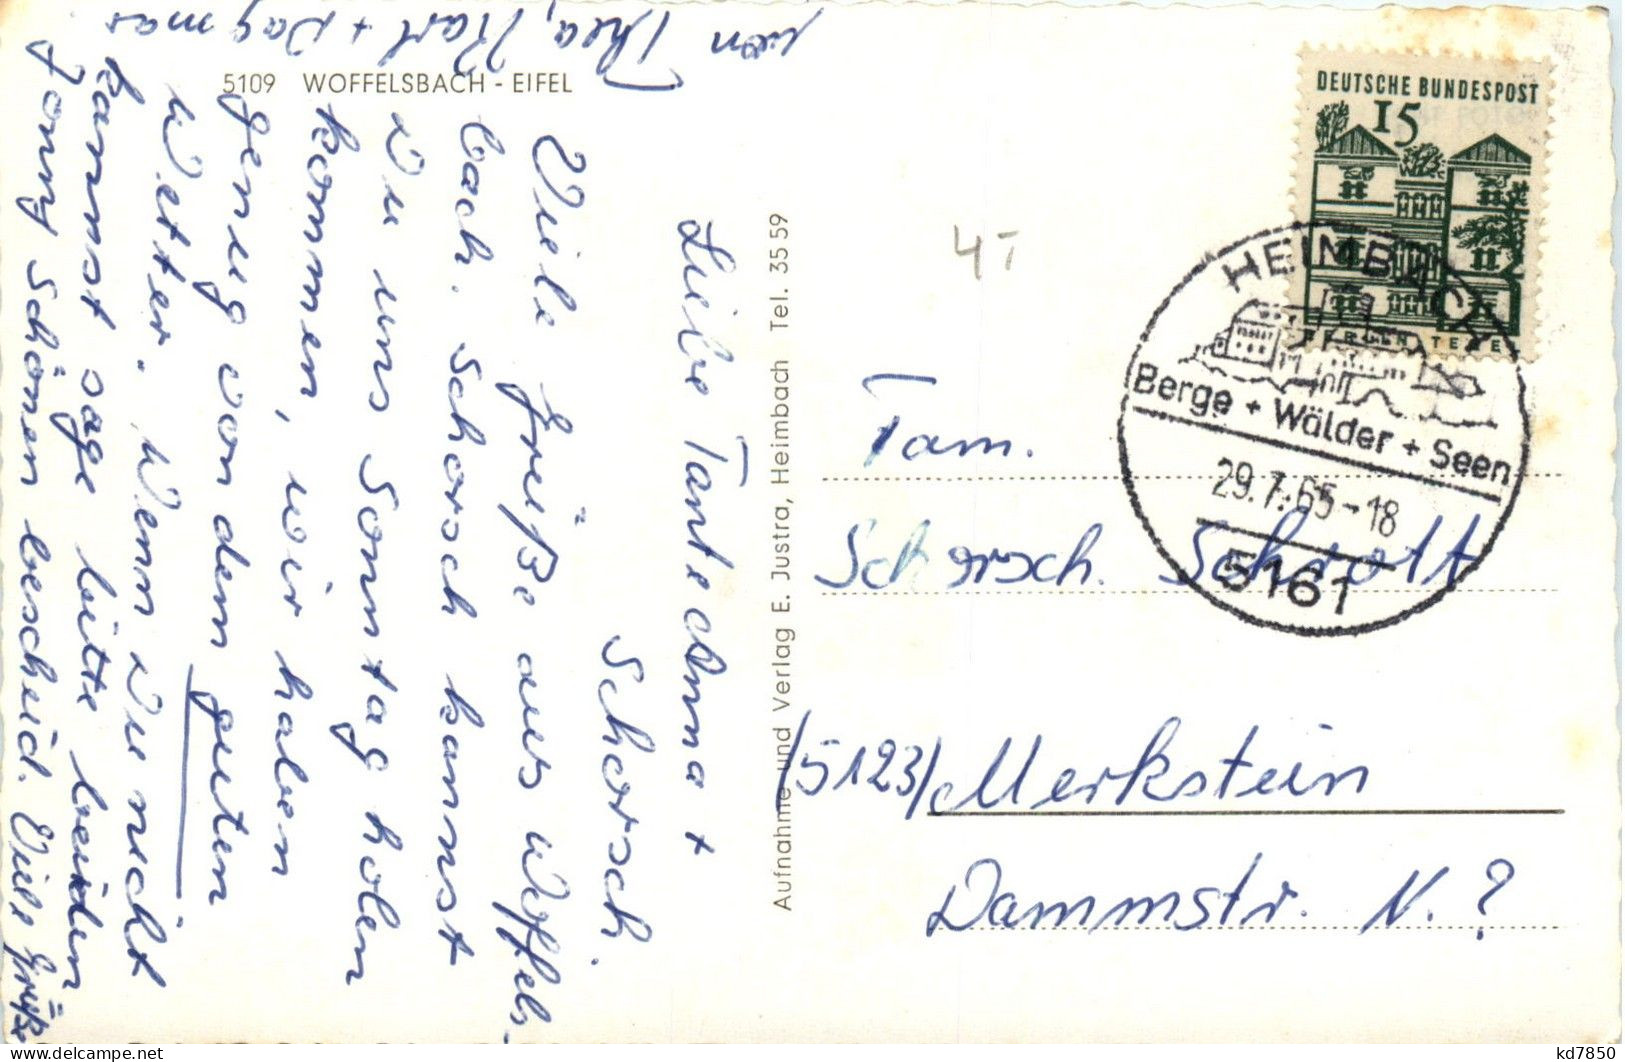 5109 WOFFELSBACH - EIFEL
Liebe Tante Anna +
Schorsch.
Viele Grüße aus Woffels-
bach. Schorsch kannst
Du uns Sonntag holen
kommen, wir haben
genug von dem guten
Wetter. Wenn Du nicht
kannst sage bitte beiden
Jonny schönen bescheid. Viele Grüße
von Thea, Karl + Dagmar
Aufnahme und Verlag E. Justra, Heimbach Tel. 35 59
4T
DEUTSCHE BUNDESPOST
15
HEIMBACH
Berge + Wälder + Seen
29.7.65-18
5161
Fam.
Schorsch. Schrott
(5123) Merkstein
Dammstr. N. ?
kd7850